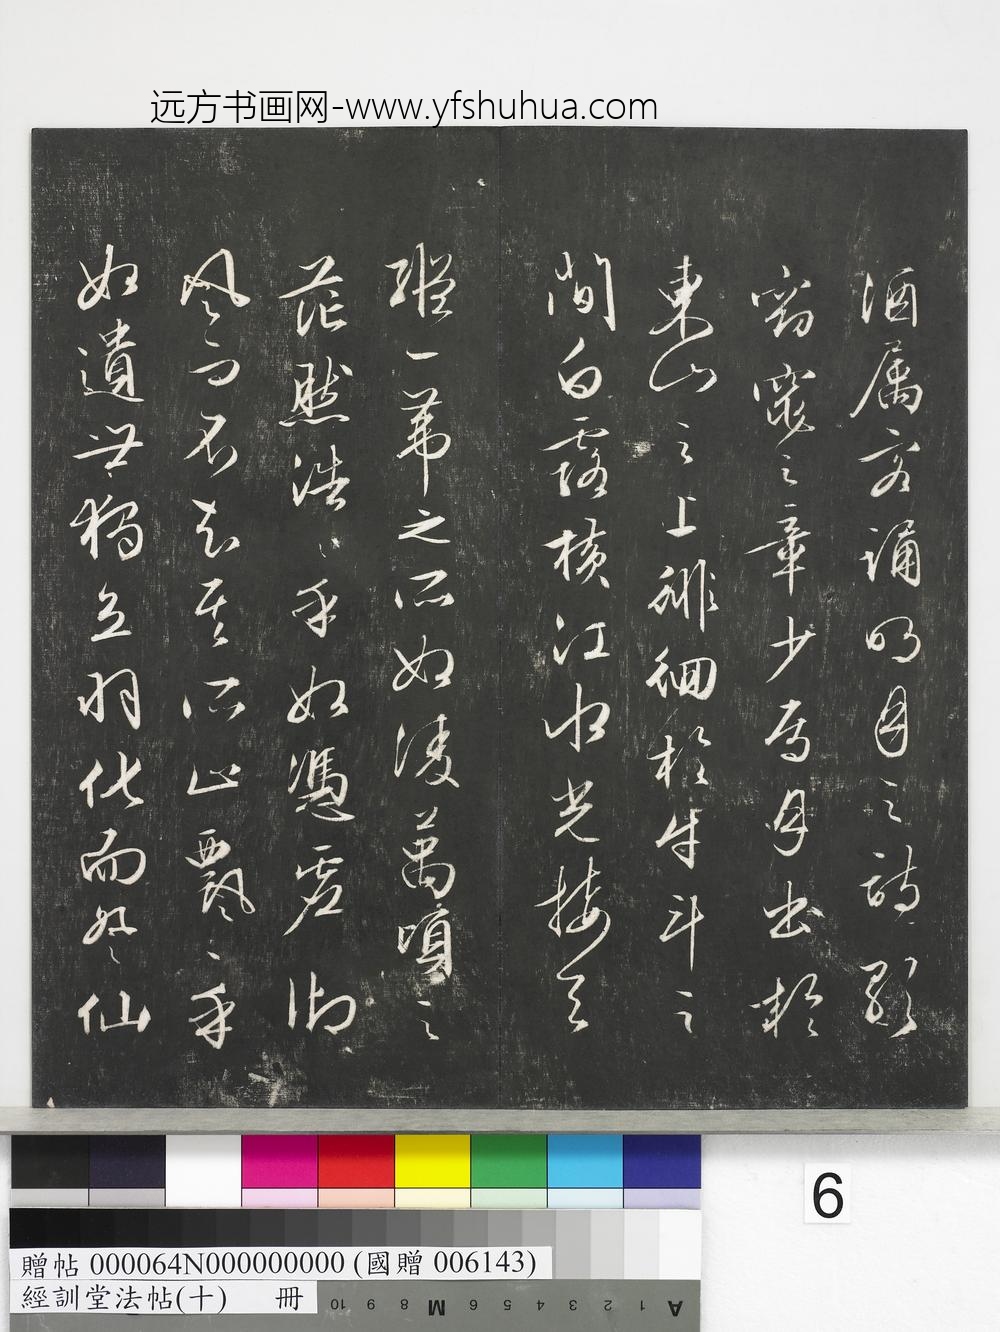 远方书画网-www.yfshuhua.com
酒属客诵明月之诗歌
窈窕之章少焉月出於
東山之上徘徊於牛斗之
間白露横江水光接天
縱一葦之所如淩萬頃之
茫然浩〻乎如憑虚御
风而不知其所止飄〻乎
如遺世獨立羽化而登仙
6
贈帖 000064N000000000 (國贈 006143)
經訓堂法帖(十) 冊
10 9 8 M 6 5 4 3 2 1 A